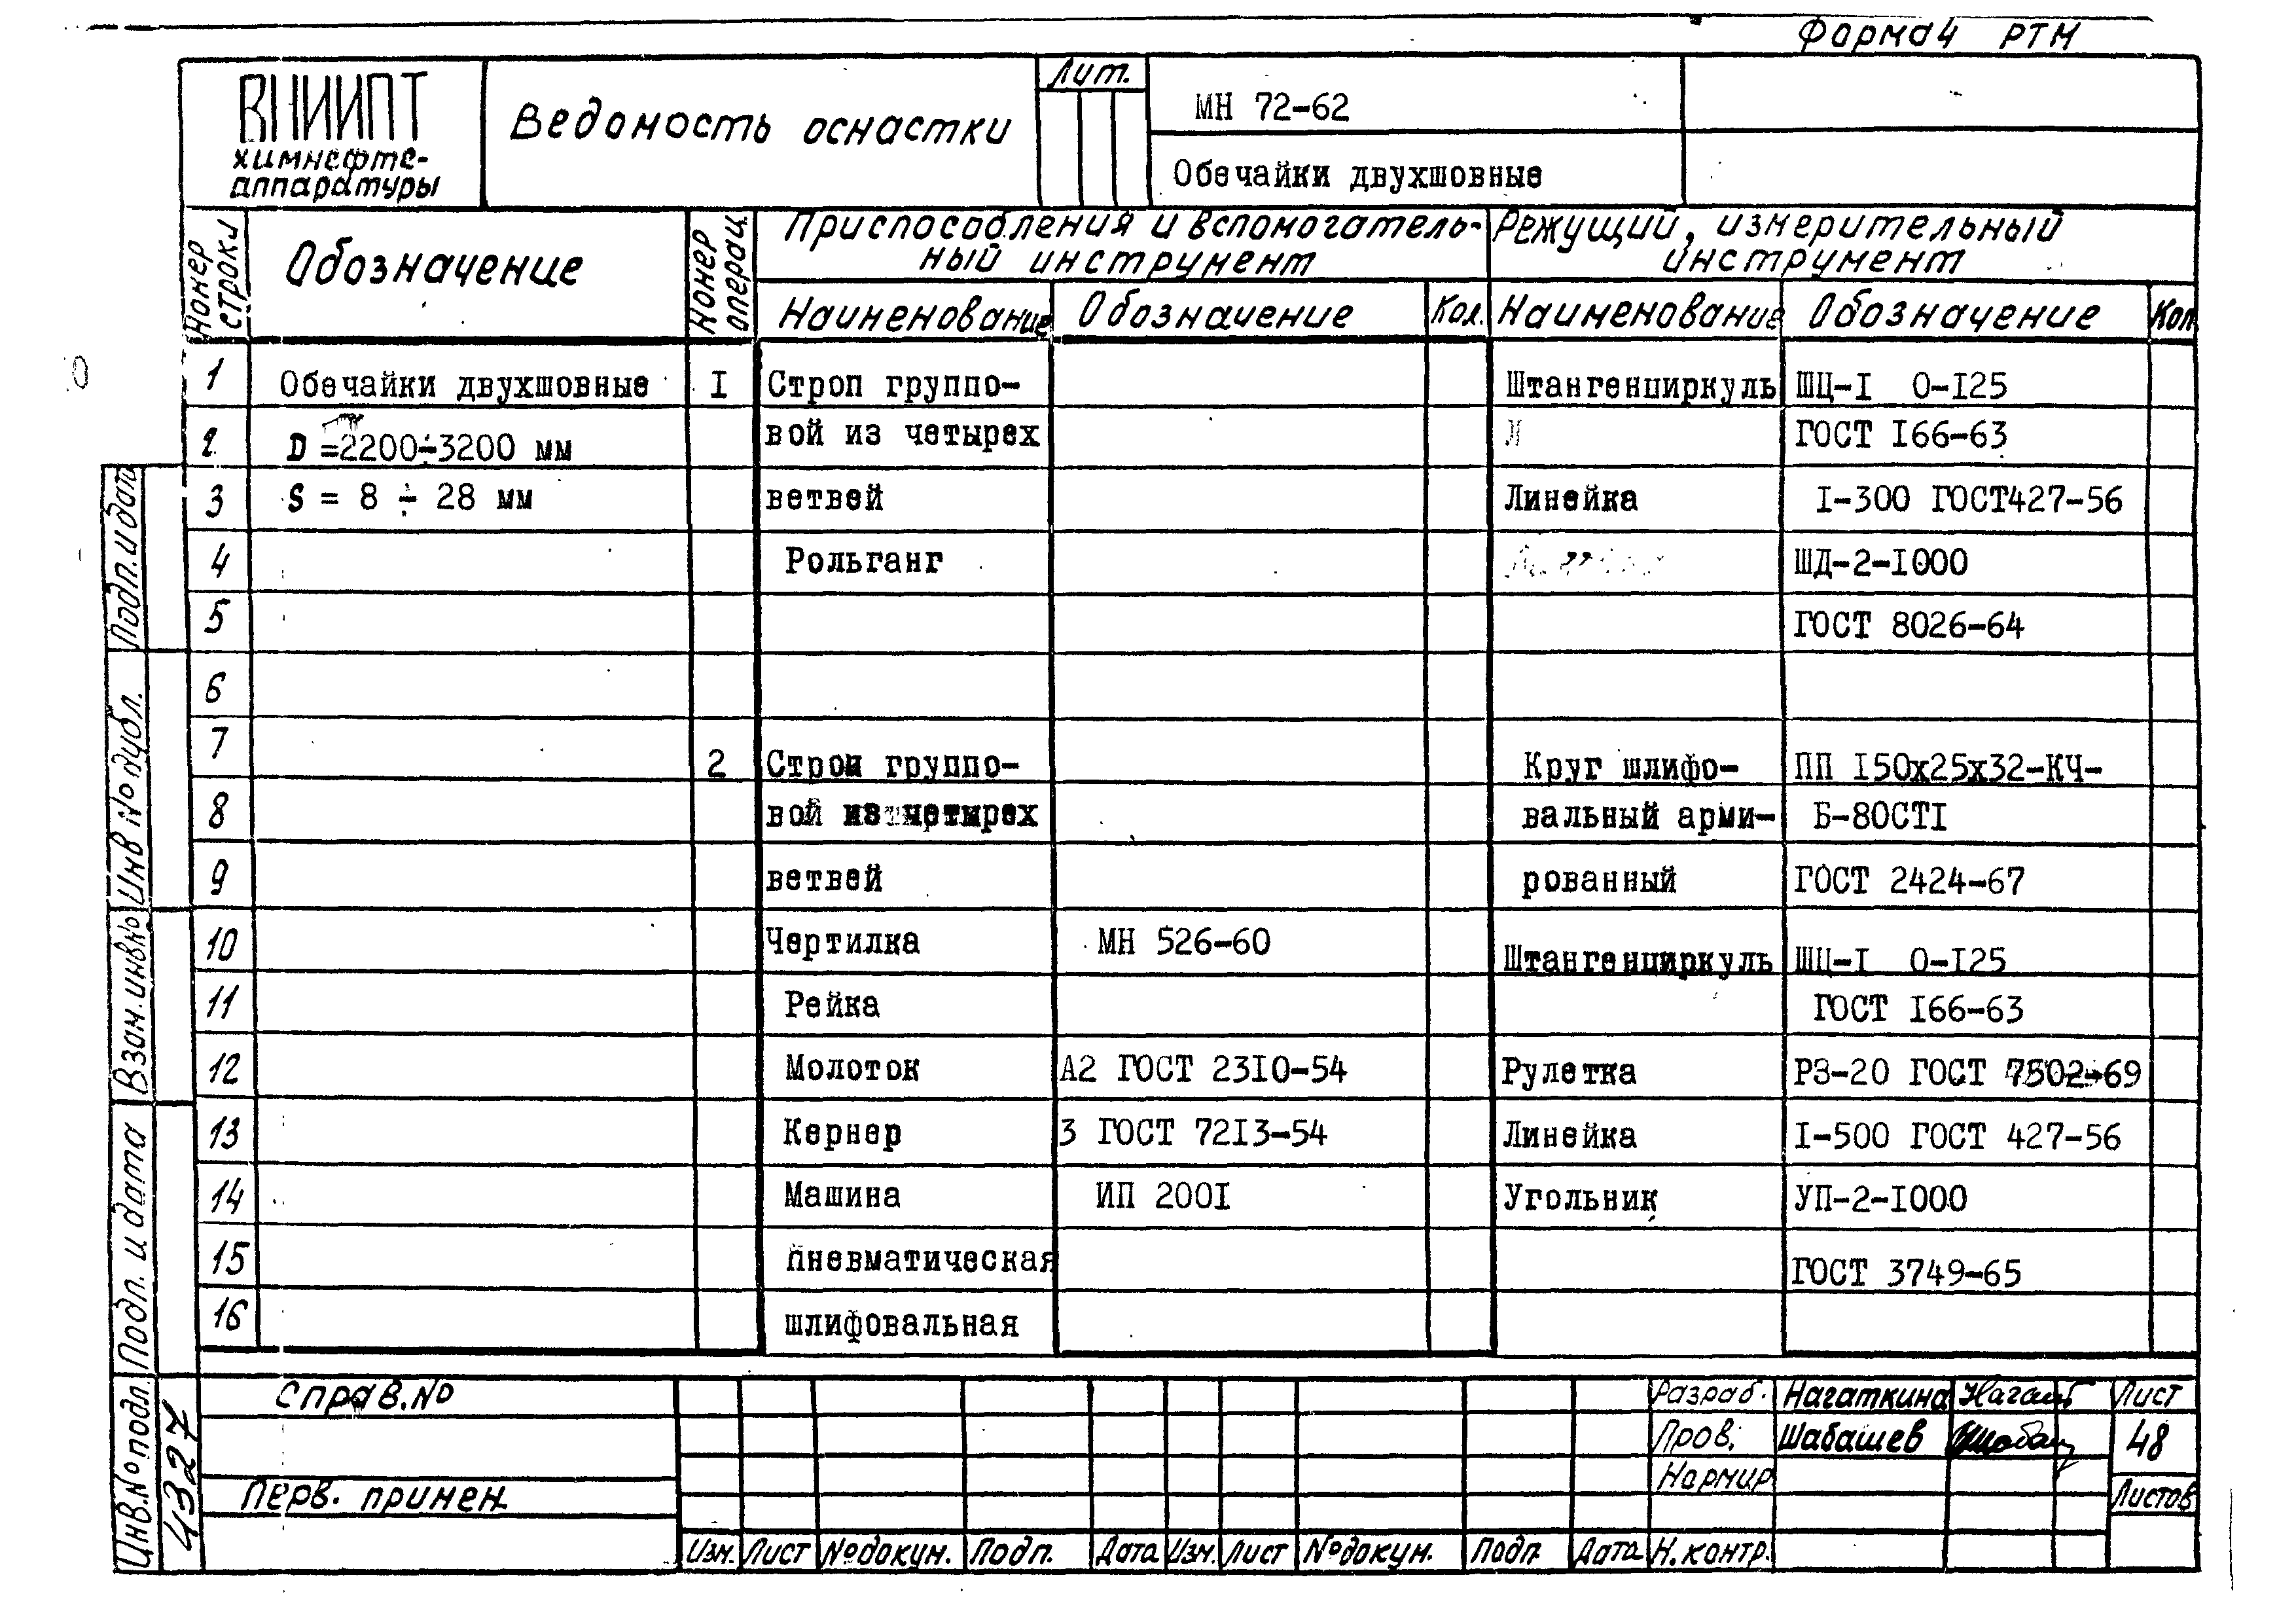 Форма 4 РТМ
ВНИИПТ
химнефте-
аппаратуры
Ведомость оснастки
Лит.
МН 72-62
Обечайки двухшовные
Номер строки
Обозначение
Номер операц.
Приспособления и вспомогатель-
ный инструмент
Режущий, измерительный
инструмент
Наименование Обозначение Кол. Наименование Обозначение Кол.
1 Обечайки двухшовные I Строп группо- Штангенциркуль ШЦ-I 0-I25
2 D =2200÷3200 мм вой из четырех ГОСТ I66-63
3 S = 8 ÷ 28 мм ветвей Линейка I-300 ГОСТ427-56
4 Рольганг ШД-2-I000
5 ГОСТ 8026-64
6
7 2 Строп группо- Круг шлифо- ПП I50х25х32-КЧ-
8 вой из четырех вальный арми- Б-80СТI
9 ветвей рованный ГОСТ 2424-67
10 Чертилка МН 526-60 Штангенциркуль ШЦ-I 0-I25
11 Рейка ГОСТ I66-63
12 Молоток А2 ГОСТ 23I0-54 Рулетка РЗ-20 ГОСТ 7502-69
13 Кернер 3 ГОСТ 72I3-54 Линейка I-500 ГОСТ 427-56
14 Машина ИП 200I Угольник УП-2-I000
15 пневматическая ГОСТ 3749-65
16 шлифовальная
Подп. и дат
Инв № дубл.
Взам. инв №
Подп. и дата
Инв. № подл.
4327
Справ. №
Перв. примен.
Разраб. Нагаткина Лист
Пров. Шабашев 48
Нормир. Листов
Изм. Лист № докум. Подп. Дата Изм. Лист № докум. Подп Дата Н. контр.